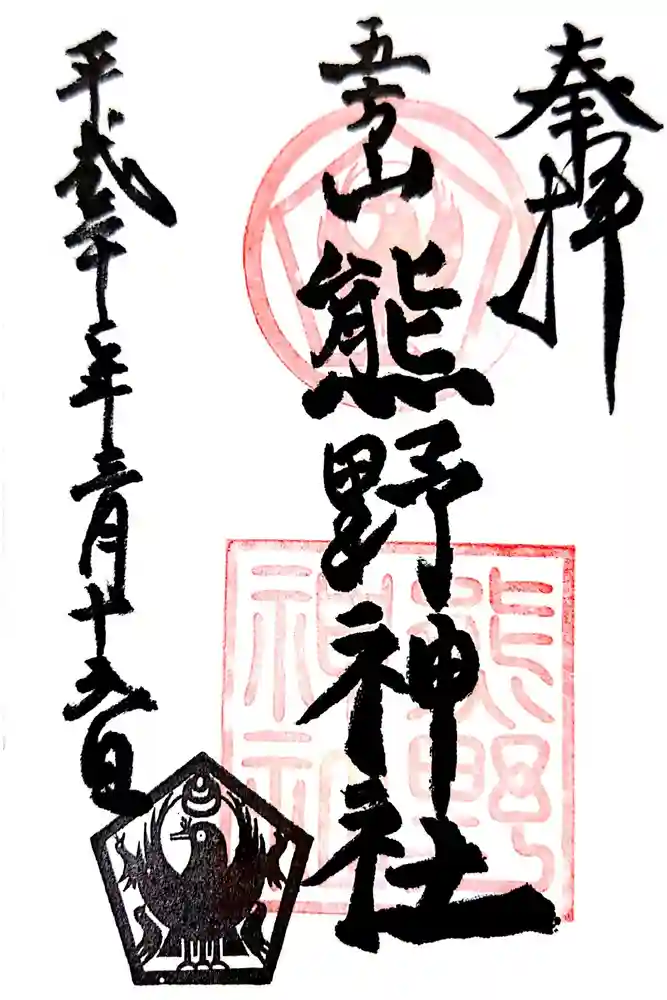 奉拝
五方山
熊野神社
平成三十一年三月十六日
熊野
神社